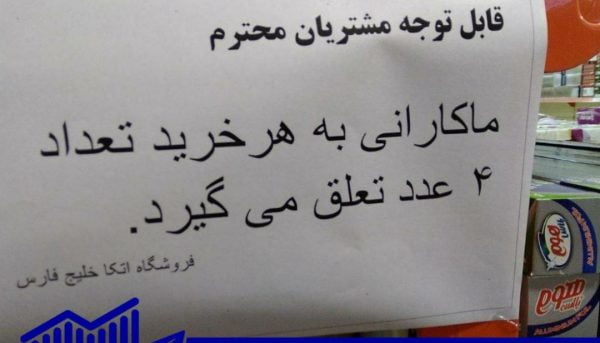 قابل توجه مشتریان محترم
ماکارانی به هرخرید تعداد
۴ عدد تعلق می گیرد.
فروشگاه اتکا خلیج فارس
ALUMINUM
ALUMINUM